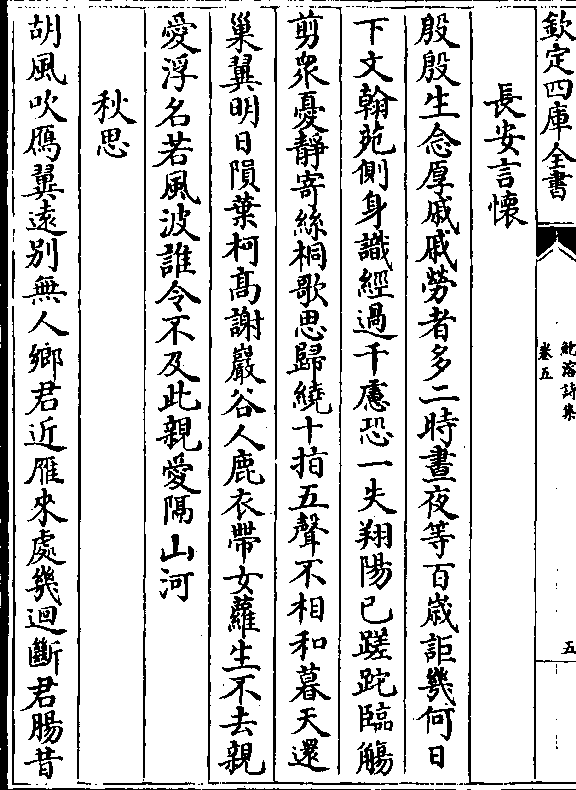 欽定四庫全書
鮑溶詩集
卷五
五
長安言懷
殷殷生念厚戚戚勞者多二時晝夜等百歳詎幾何日
下文翰苑側身識經過千慮恐一失翔陽已蹉跎臨觴
剪衆憂靜寄絲桐歌思歸繞十指五聲不相和暮天還
巢翼明日隕葉柯髙謝巖谷人鹿衣帶女蘿生不去親
愛浮名若風波誰令不及此親愛隔山河
秋思
胡風吹鴈翼遠别無人鄉君近雁來處幾迴斷君腸昔